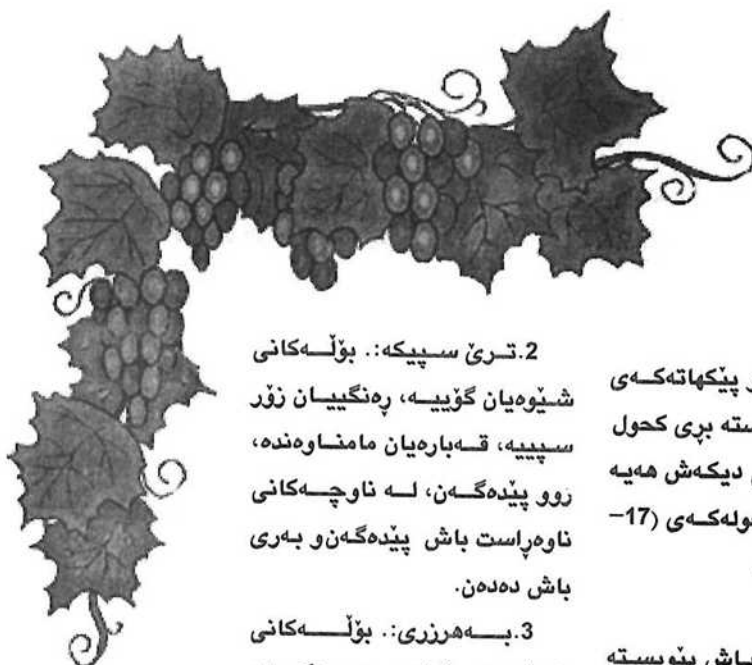 پێکهاتەکەی
ستە بڕی کحول
دیکەش هەیە
ولەکەی (17–
باش پێویستە
2.تـرێ سـپیکە:. بۆڵـەکانی
شـێوەیان گۆییـە، ڕەنگییـان زۆر
سـپییە، قـەبارەیان مامنـاوەندە،
زوو پێدەگـەن، لـە ناوچـەکانی
ناوەڕاست باش پێدەگەن‌و بەری
باش دەدەن.
3.بــەهرزری:. بۆڵــەکانی